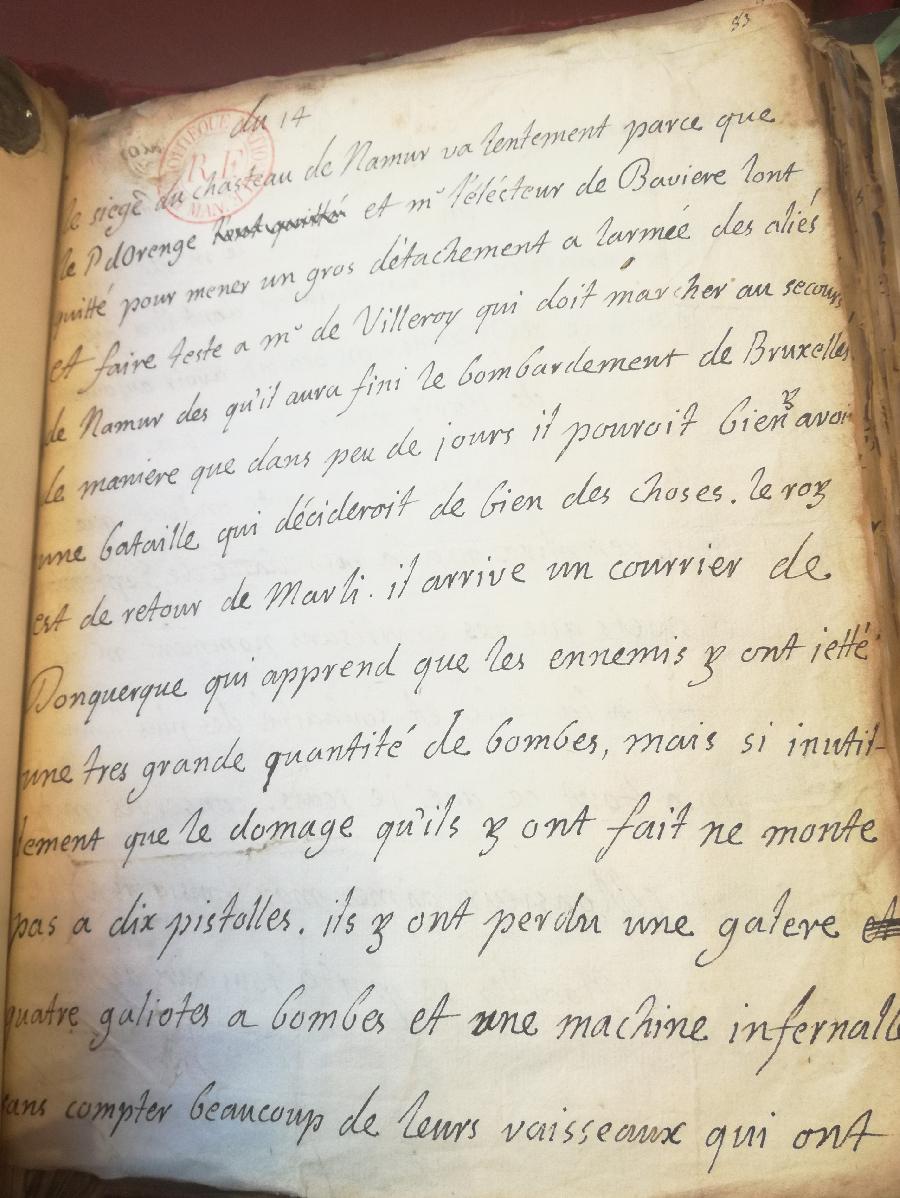 83
du 14
le siege du chasteau de Namur va lentement parce que
le P dOrenge l'ont quitté et mr l'électeur de Baviere lont
quitté pour mener un gros détachement a larmée des aliés
et faire teste a mr de Villeroy qui doit marcher au secours
de Namur des qu'il aura fini le bombardement de Bruxelles
de maniere que dans peu de jours il pouroit bien y avoir
une bataille qui décideroit de bien des choses. le roy
est de retour de Marli. il arrive un courrier de
Donquerque qui apprend que les ennemis y ont jetté
une tres grande quantité de bombes, mais si inutil-
lement que le domage qu'ils y ont fait ne monte
pas a dix pistolles. ils y ont perdu une galere et
quatre galiotes a bombes et une machine infernalle
sans compter beaucoup de leurs vaisseaux qui ont
R F